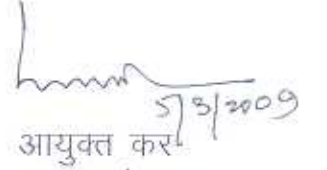 5/3/2009
आयुक्त कर